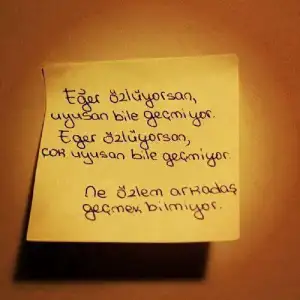 Eğer özlüyorsan,
uyusan bile geçmiyor.
Eğer özlüyorsan,
çok uyusan bile geçmiyor.
Ne özlem arkadaş
geçmek bilmiyor.